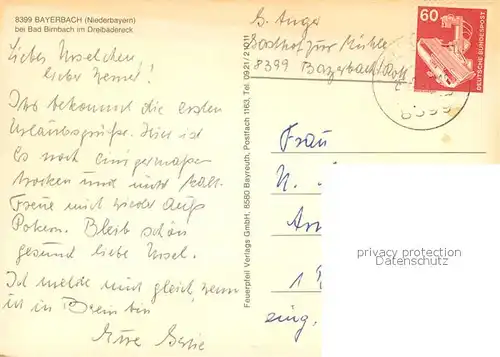 8399 BAYERBACH (Niederbayern)
bei Bad Birnbach im Dreibädereck
Liebes Urselchen,
lieber Bennel!
Ihr bekommt die ersten
Urlaubsgrüße. Hier ist
Es noch einigermaßen
trocken und nicht kalt.
Freue mich wieder aufs
Pokern. Bleib schön
gesund liebe Ursel.
Ich melde mich gleich, wenn
ich in
bin
Eure
Feuerpfeil Verlags GmbH, 8580 Bayreuth, Postfach 1163, Tel. 0921/21011
G. Unger
Gasthof zur Mühle
8399 Bayerbach/Rott
60
DEUTSCHE BUNDESPOST
8399
Frau
privacy protection
Datenschutz